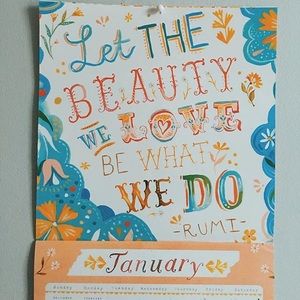 Let THE
BEAUTY
WE LOVE
BE WHAT
WE DO
-RUMI-
January
Sunday Monday Tuesday Wednesday Thursday Friday Saturday